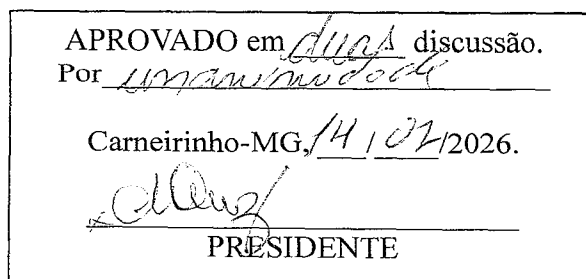 APROVADO em duas discussão.
Por unanimidade
Carneirinho-MG, 14 / 02 /2026.
PRESIDENTE